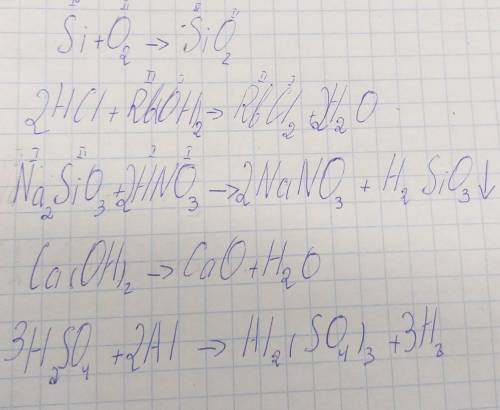 Si + O₂ → SiO₂
2HCl + Rb(OH)₂ → RbCl₂ + 2H₂O
Na₂SiO₃ + 2HNO₃ → 2NaNO₃ + H₂SiO₃↓
Ca(OH)₂ → CaO + H₂O
3H₂SO₄ + 2Al → Al₂(SO₄)₃ + 3H₂